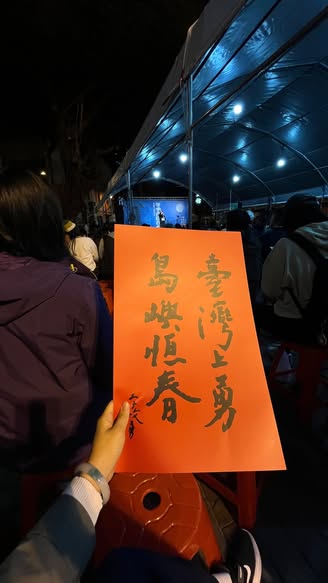 臺灣上勇
島嶼恒春